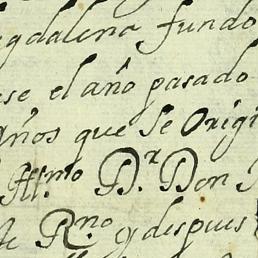 gdalena fundo
ese el año pasado
años que se Origi
Illmo Dr Don
de Rno y despues